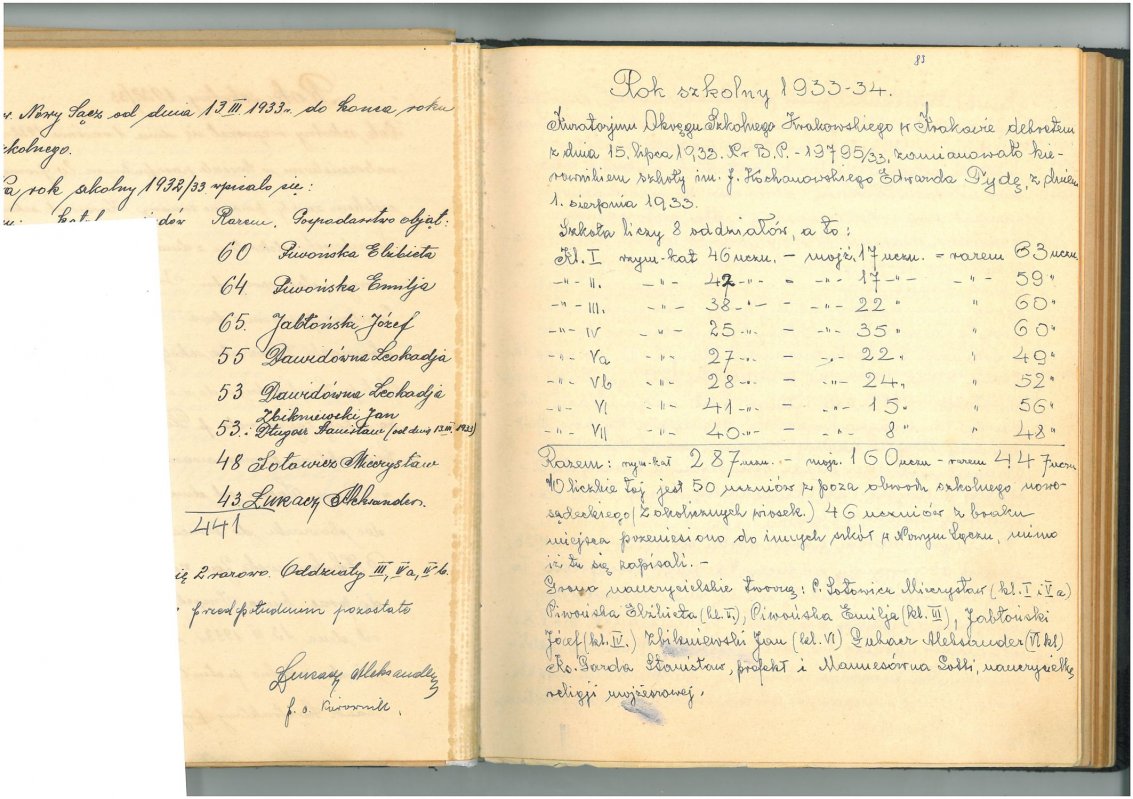 w. Nowy Sącz od dnia 13 III 1933 r. do końca roku
szkolnego.
Na rok szkolny 1932/33 wpisało się:
Razem. Gospodarstwo objął:
60 Piwońska Elżbieta
64. Piwońska Emilja
65. Jabłoński Józef
55 Dawidówna Leokadja
53 Dawidówna Leokadja
Zbikniewski Jan
53. i Długosz Stanisław (od dnia 13.III.1933)
48 Sotowicz Mieczysław
43 Łukacz Aleksander.
441
się 2 razowo. Oddziały III, IVa, IVb.
przedpołudniem pozostało
Łukacz Aleksander
p. o. kierownik.
83
Rok szkolny 1933-34.
Kuratorjum Okręgu Szkolnego Krakowskiego w Krakowie dekretem
z dnia 15. lipca 1933. Nr B.P.-19795/33, zamianowało kie-
rownikiem szkoły im. J. Kochanowskiego Edwarda Tydę, z dniem
1. sierpnia 1933.
Szkoła liczy 8 oddziałów, a to:
Kl. I rzym-kat 46 uczn. - mojż. 17 uczn. = razem 63 uczn.
-"- II. -"- 42 -"- - -"- 17 -"- -"- 59 "
-"- III. -"- 38 -"- - -"- 22 " " 60 "
-"- IV -"- 25 -"- - -"- 35 " " 60 "
-"- Va -"- 27 -"- - -"- 22 " " 49 "
-"- Vb -"- 28 -"- - -"- 24 " " 52 "
-"- VI -"- 41 -"- - -"- 15 " " 56 "
-"- VII -"- 40 -"- - -"- 8 " " 48 "
Razem: rzym-kat 287 uczn. - mojż. 160 uczn - razem 447 uczn
W liczbie tej jest 50 uczniów z poza obwodu szkolnego nowo-
sądeckiego (z okolicznych wiosek.) 46 uczniów z braku
miejsca przeniesiono do innych szkół w Nowym Sączu, mimo
iż tu się zapisali. -
Grono nauczycielskie tworzą: P. Sotowicz Mieczysław (kl. I i Va)
Piwońska Elżbieta (kl. II.), Piwońska Emilja (kl. III), Jabłoński
Józef (kl. IV.) Zbikniewski Jan (kl. VI) Łukacz Aleksander (VII kl)
Ks. Garda Stanisław, prefekt i Mannesówna Gołki, nauczycielkę
religji mojżeszowej.